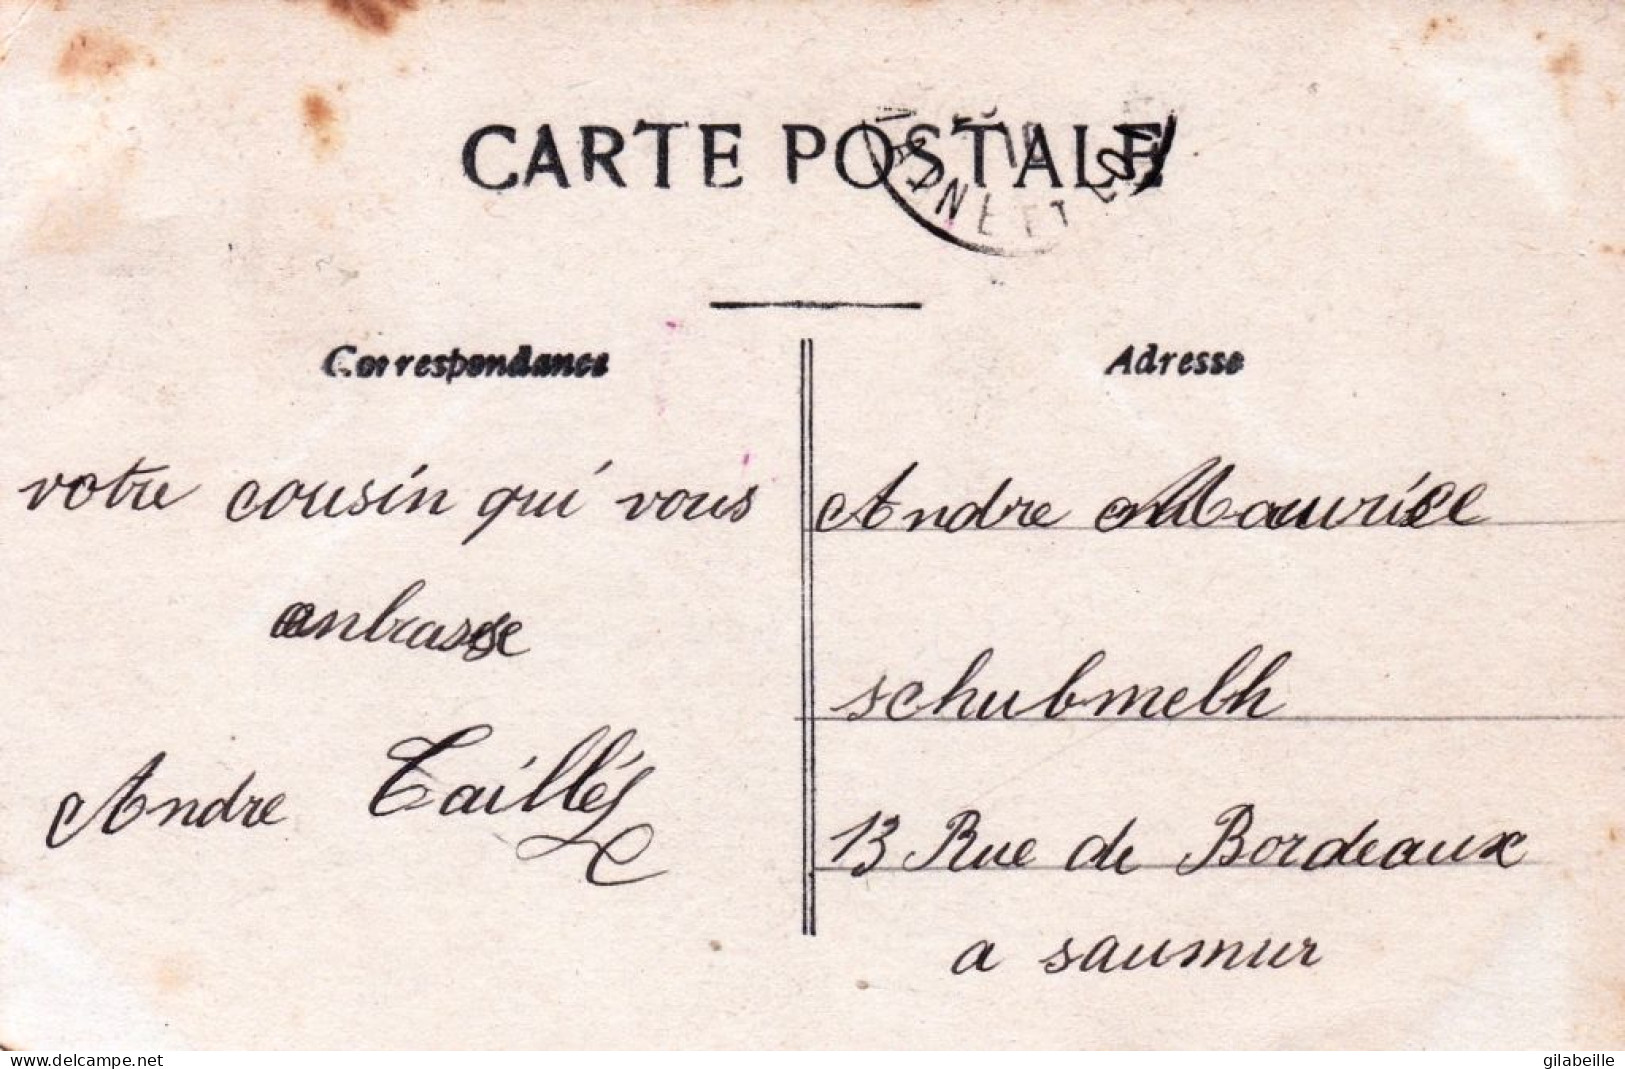 CARTE POSTALE
Correspondance
votre cousin qui vous
anbrasse
Andre Taillé
Adresse
Andre Maurice
schubmelh
13 Rue de Bordeaux
a saumur
www.delcampe.net
gilabeille